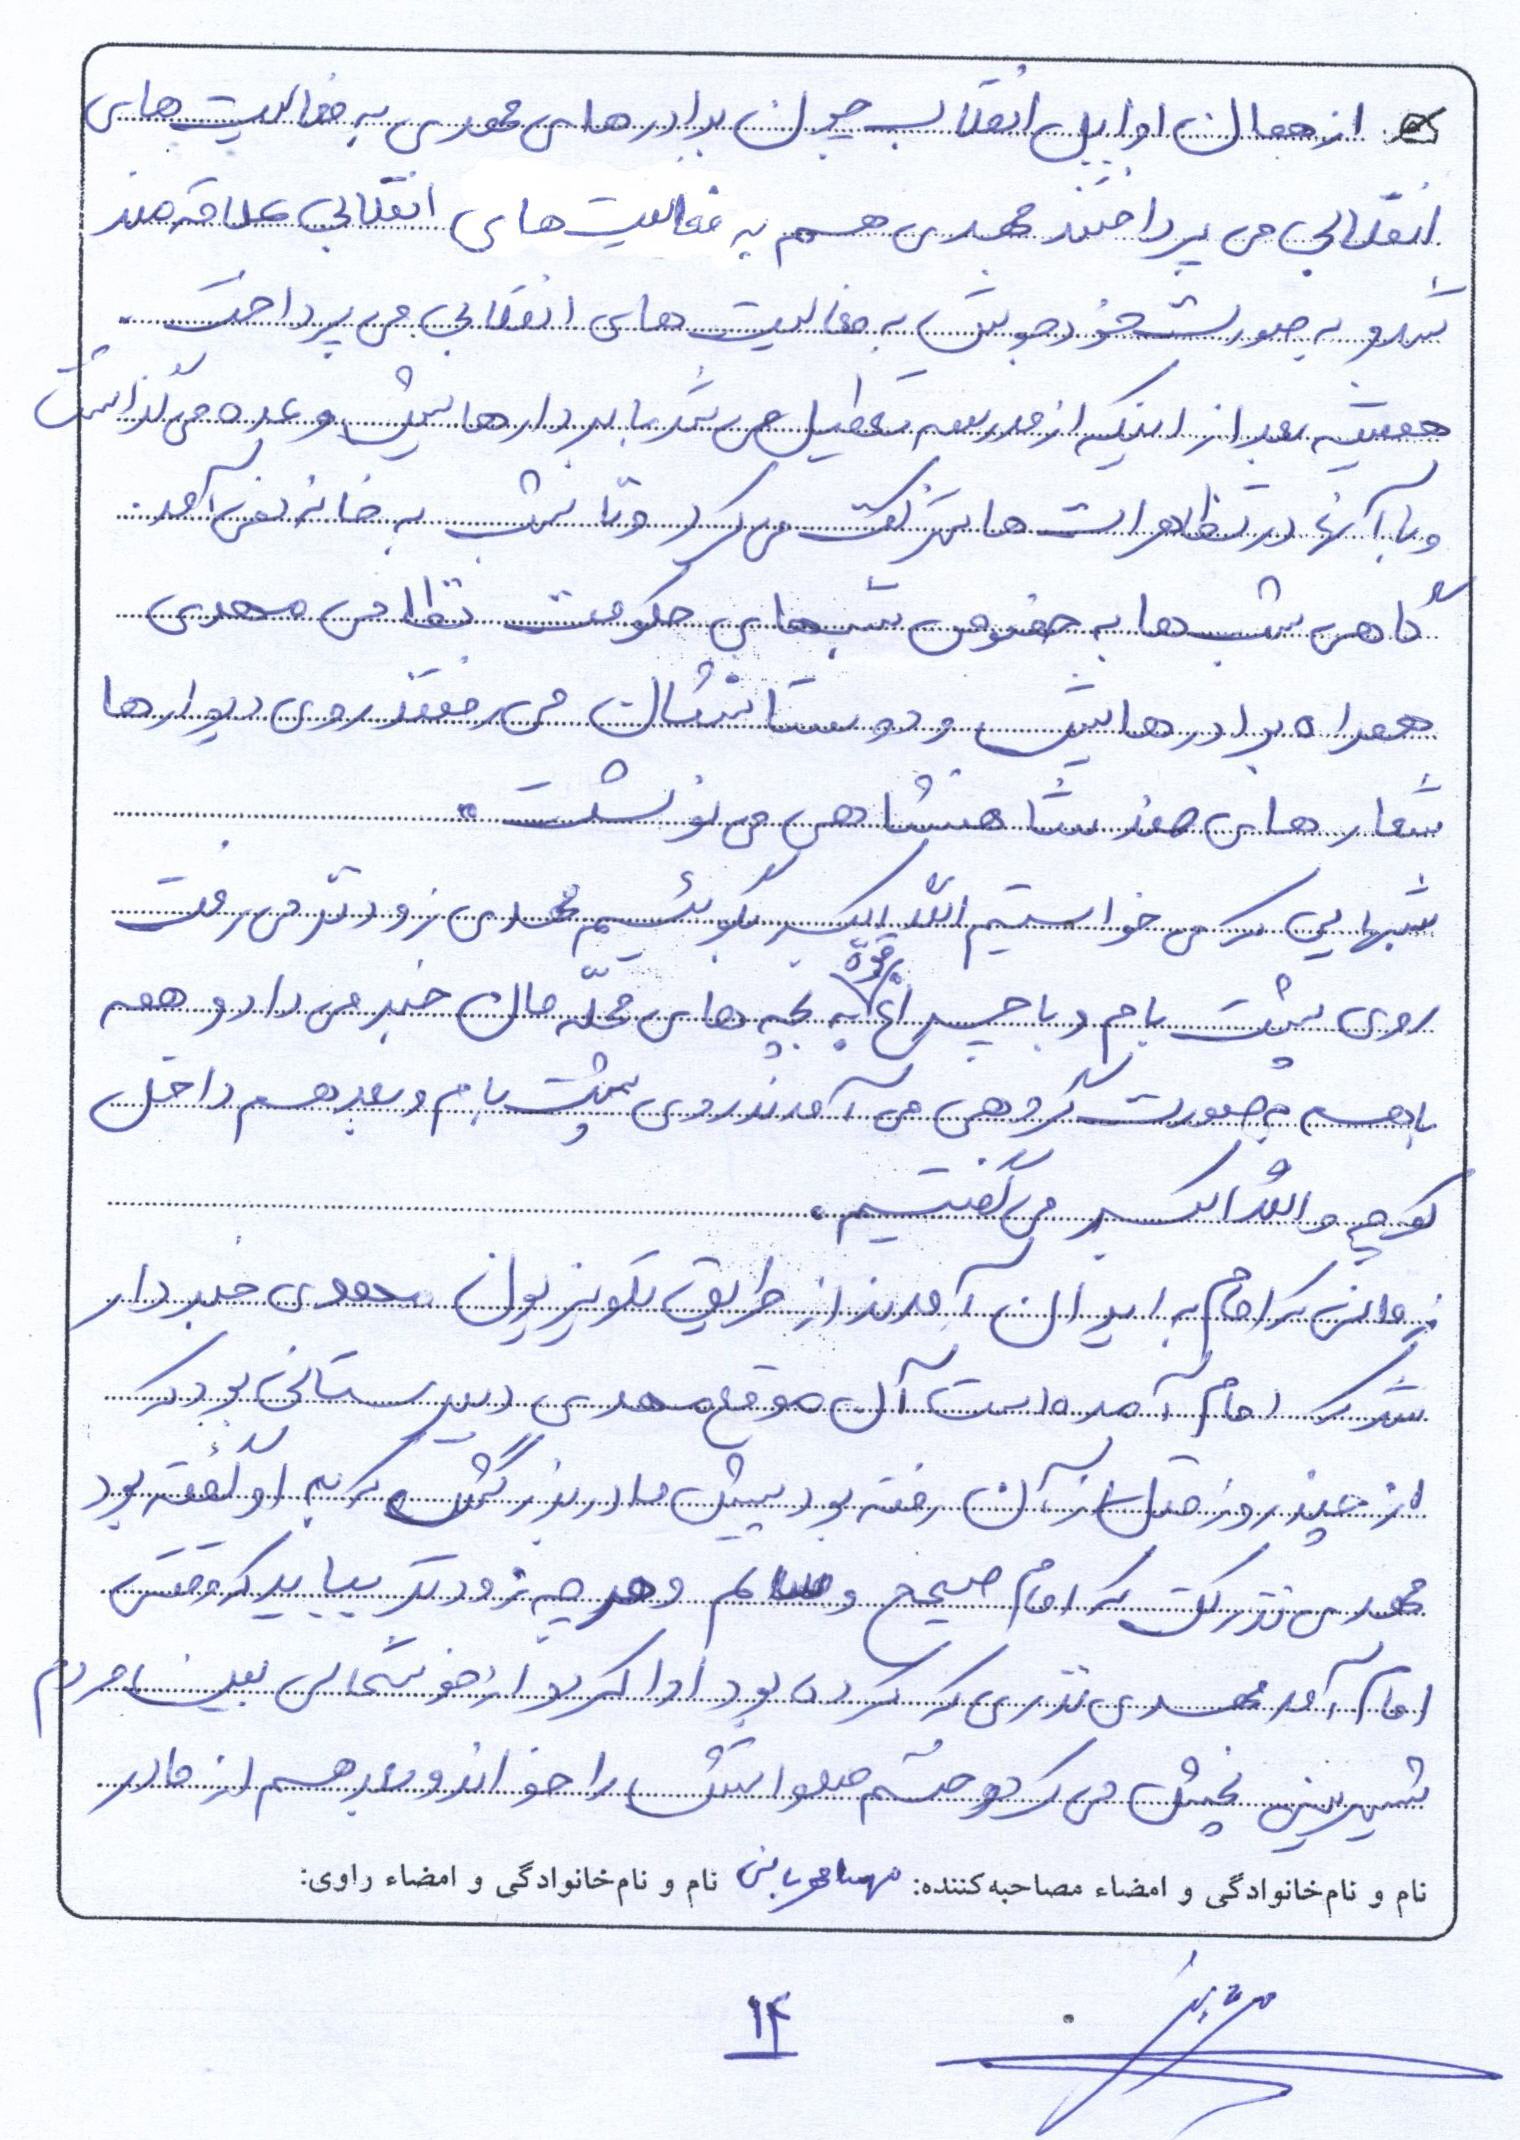 از همان اوایل انقلاب چون برادرهای مهدی به فعالیت های
انقلابی می پرداختند مهدی هم به فعالیت های انقلابی علاقه مند
شد و به صورت خودجوش به فعالیت های انقلابی می پرداخت.
همیشه بعد از اینکه از مدرسه تعطیل می شد با بردارهایش وعده می گذاشت
و با آنها در تظاهرات ها شرکت می کرد و تا شب به خانه نمی آمد.
گاهی شب ها به خصوص شبهای حکومت نظامی مهدی
همراه برادرهایش و دوستانشان می رفتند روی دیوارها
شعارهای ضد شاهنشاهی می نوشت.
شبهایی که می خواستیم الله اکبر بگوئیم مهدی زودتر می رفت
روی پشت بام و با چراغ قوه به بچه های محله مان خبر می داد و همه
باهم به صورت گروهی می آمدند روی پشت بام و بعد هم داخل
کوچه و الله اکبر می گفتیم.
زمانی که امام به ایران آمدند از طریق تلویزیون مهدی خبردار
شد که امام آمده است آن موقع مهدی دبیرستانی بود که
از چند روز قبل از آن رفته بود پیش مادربزرگش که به او گفته بود
مهدی نذر کن که امام صحیح و سالم و هرچه زودتر بیاید که وقتی
امام آمد مهدی نذری که کرده بود ادا کرد و از خوشحالی بین مردم
شیرینی پخش می کرد و ختم صلواتش را خواند و بعد هم از مادر
نام و نام‌خانوادگی و امضاء مصاحبه‌کننده: نام و نام‌خانوادگی و امضاء راوی:
۱۴